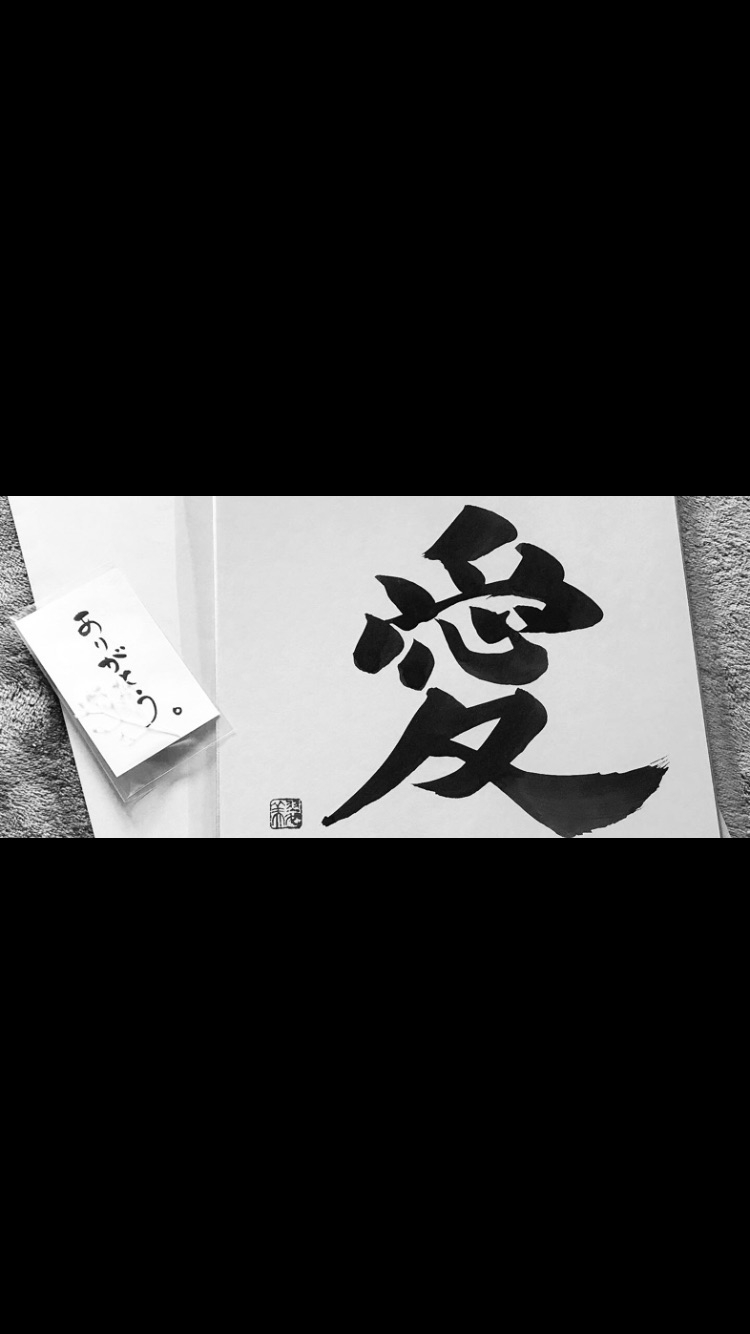 ありがとう。
愛